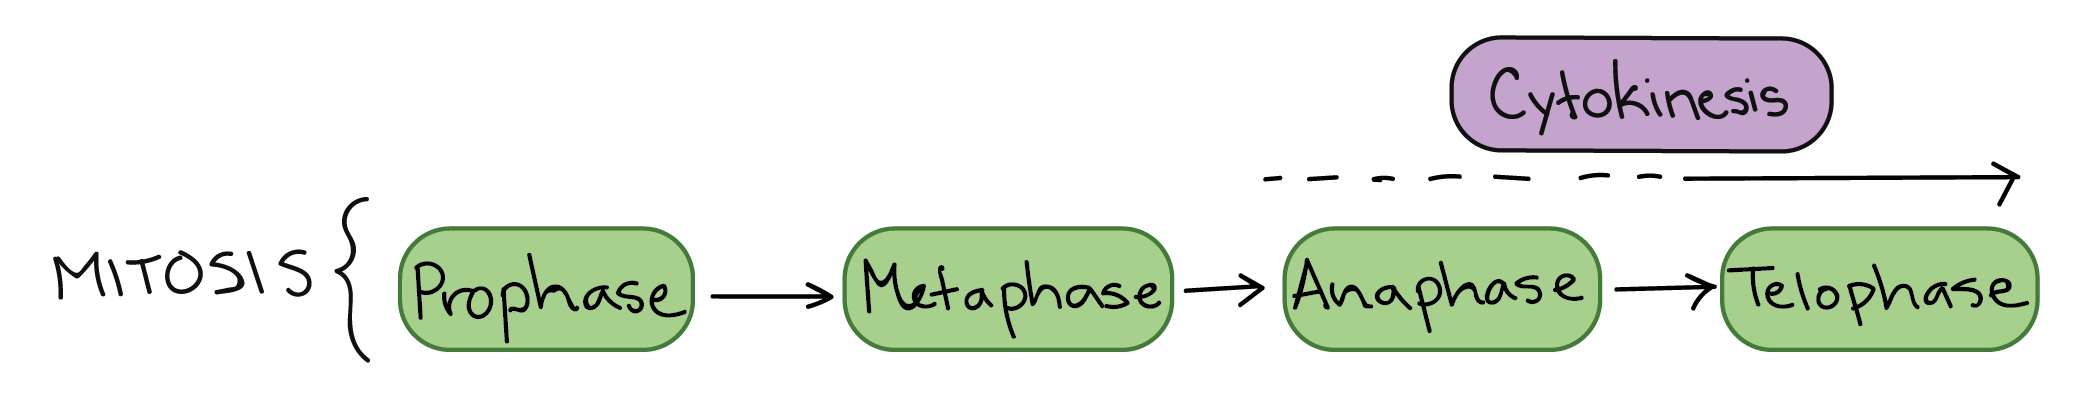 Cytokinesis
MITOSIS
Prophase
Metaphase
Anaphase
Telophase